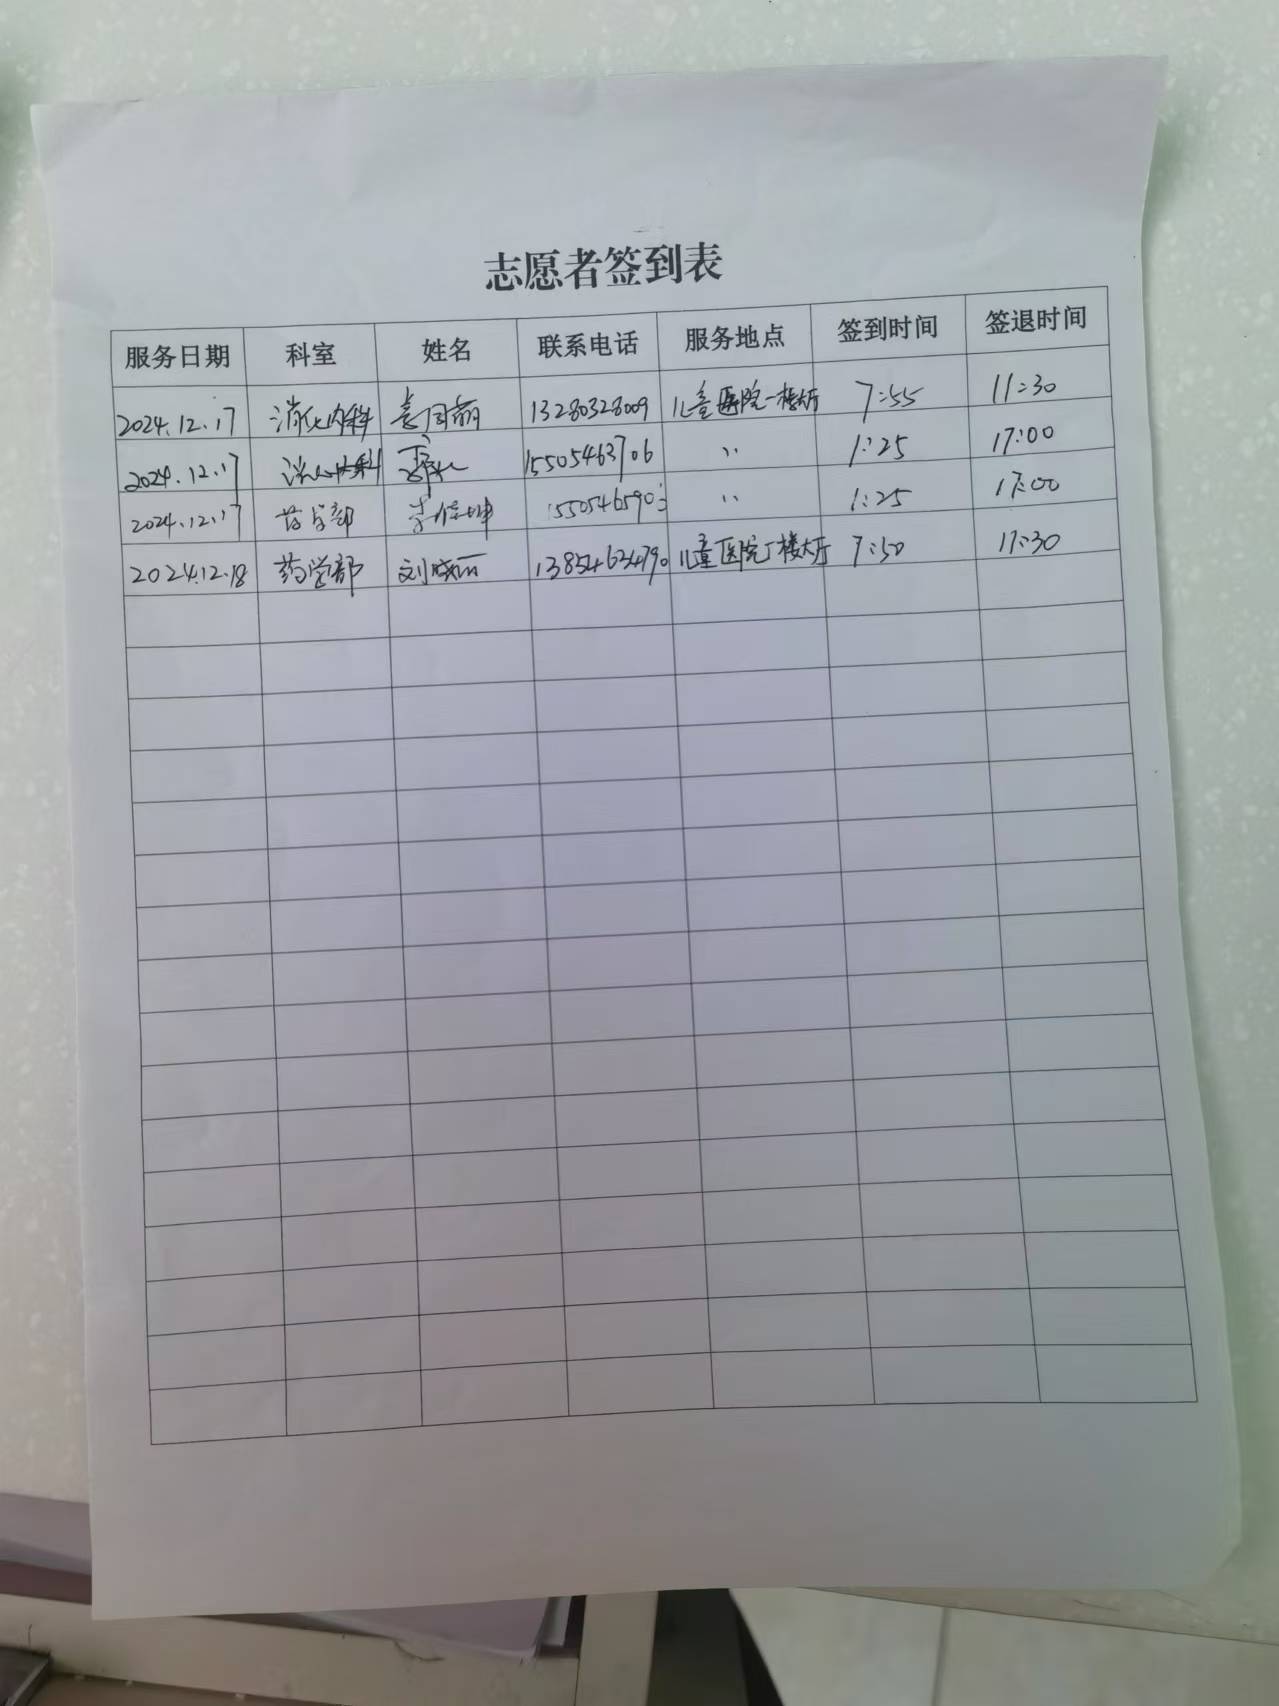 志愿者签到表
服务日期 科室 姓名 联系电话 服务地点 签到时间 签退时间
2024.12.17 消化内科 袁同丽 13280328009 儿童医院一楼大厅 7:55 11:30
2024.12.17 消化内科 15505463706 ,, 1:25 17:00
2024.12.17 药学部 ,, 1:25 17:00
2024.12.18 药学部 刘晓丽 13854634790 儿童医院一楼大厅 7:50 11:30